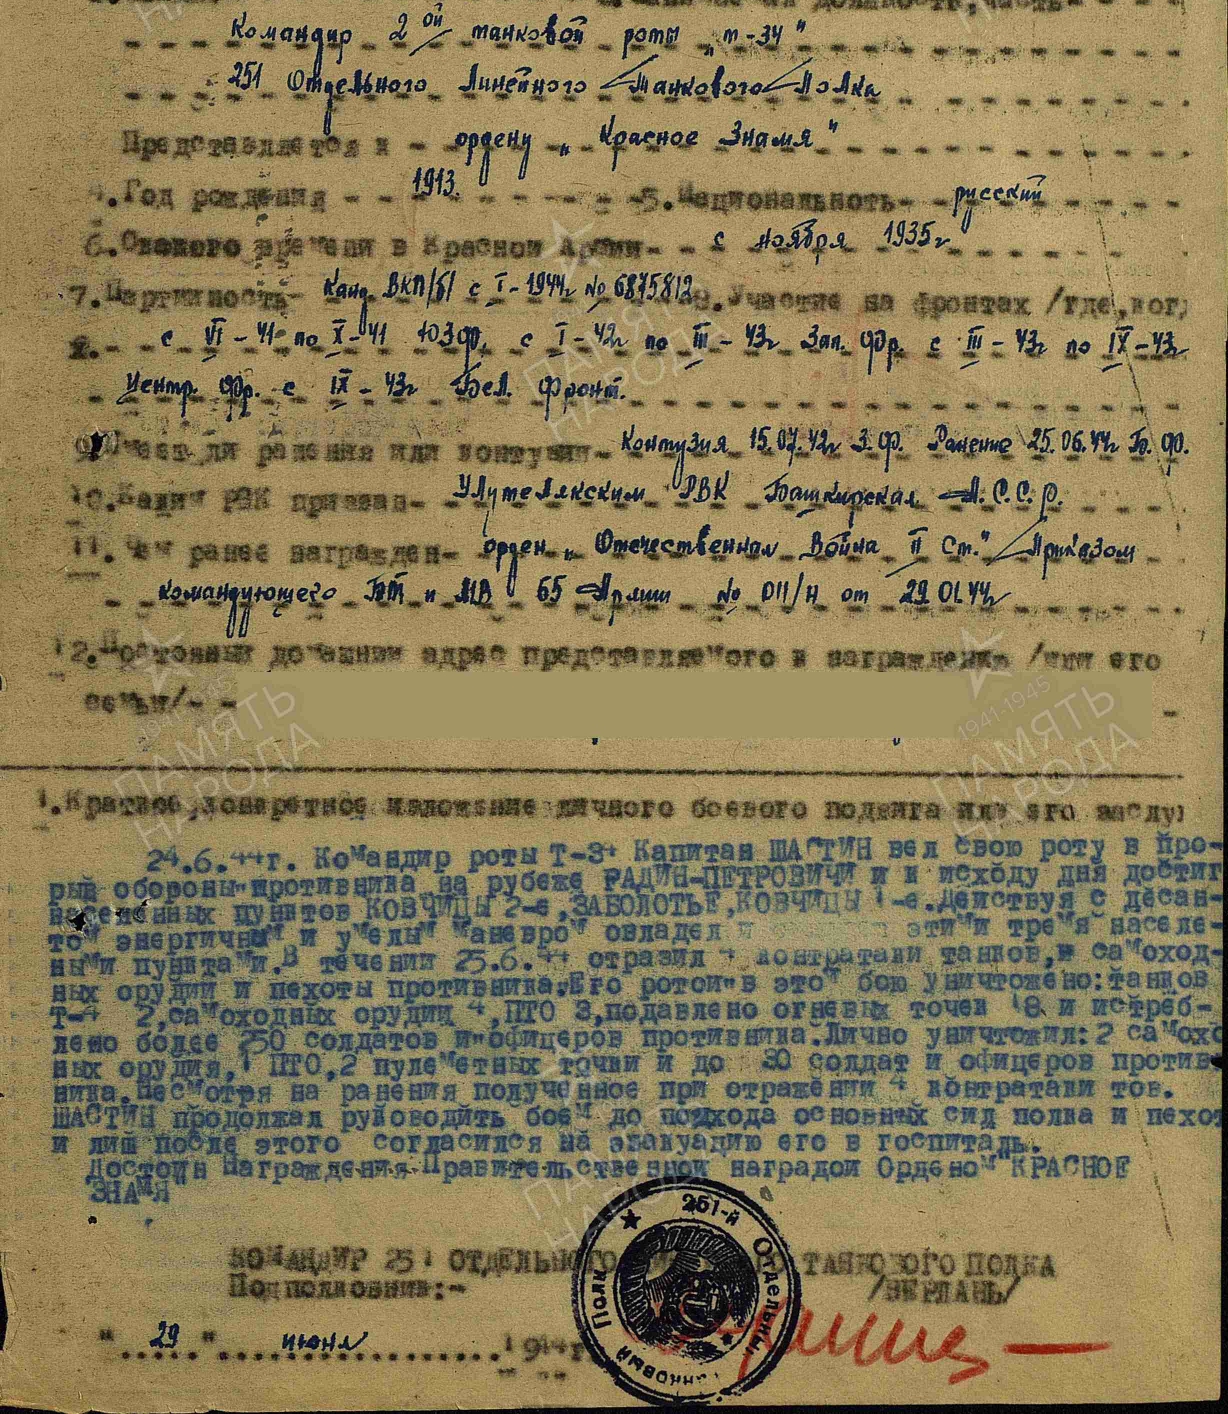 должность, часть
Командир 2ой танковой роты "Т-34"
251 Отдельного Линейного Танкового Полка
Представляется к - ордену "Красное Знамя"
4. Год рождения - - 1913. - - 5. Национальность - русский
6. С какого времени в Красной Армии - - с ноября 1935г
7. Партийность - Канд ВКП/б/ с I-1944г № 6875812 8. Участие на фронтах /где, ког
с VI-41 по X-41 ЮЗФр. с I-42г по III-43г Зап. Фр. с III-43г по IX-43г
Центр. Фр. с IX-43г Бел. Фронт.
9. Имеет ли ранения или контузии - Контузия 15.07.42г З.Ф. Ранение 25.06.44г Б. Ф.
10. Каким РВК призван - Улутелякским РВК Башкирская А.С.С.Р.
11. Чем ранее награжден - орден "Отечественная Война II ст." Приказом
командующего БТ и МВ 65 Армии № 011/н от 29.01.44г
12. Постоянный домашний адрес представляемого к награждению /или его
семьи/ - -
1. Краткое, конкретное изложение личного боевого подвига или его заслу
24.6.44г. Командир роты Т-34 Капитан ШАСТИН вел свою роту в про-
рыв обороны противника на рубеже РАДИН-ПЕТРОВИЧИ и к исходу дня достиг
населенных пунктов КОВЧИЦЫ 2-е, ЗАБОЛОТЬЕ, КОВЧИЦЫ 1-е. Действуя с десан-
том энергичным и умелым маневром овладел этими тремя населе-
ными пунктами. В течении 25.6.44 отразил 4 контратаки танков, самоход-
ных орудий и пехоты противника. Его ротой в этом бою уничтожено: танков
Т-4 2, самоходных орудий 4, ПТО 3, подавлено огневых точек 18 и истреб-
лено более 250 солдатов и офицеров противника. Лично уничтожил: 2 самохо
ных орудия, 1 ПТО, 2 пулеметных точки и до 30 солдат и офицеров против-
ника. Несмотря на ранения полученное при отражении 4 контратаки тов.
ШАСТИН продолжал руководить боем до подхода основных сил полка и пехот
и лиш после этого согласился на эвакуацию его в госпиталь.
Достоин Награждения Правительственной наградой Орденом "КРАСНОЕ
ЗНАМЯ"
КОМАНДИР 251 ОТДЕЛЬНОГО ТАНКОВОГО ПОЛКА
Подполковник:- /ВЕРЛАНЬ/
251-й Отдельный Танковый Полк
"29" июня 1944г
ПАМЯТЬ НАРОДА
1941-1945